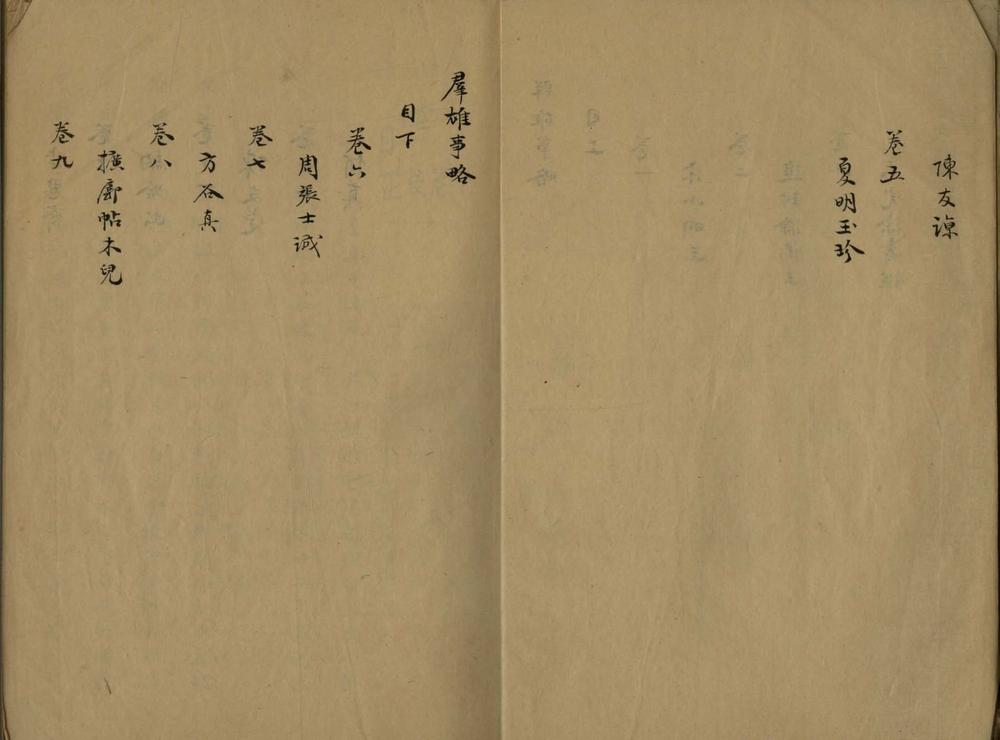 陳友諒
卷五
夏明玉珍
羣雄事略
目下
卷六
周張士誠
卷七
方谷真
卷八
擴廓帖木兒
卷九